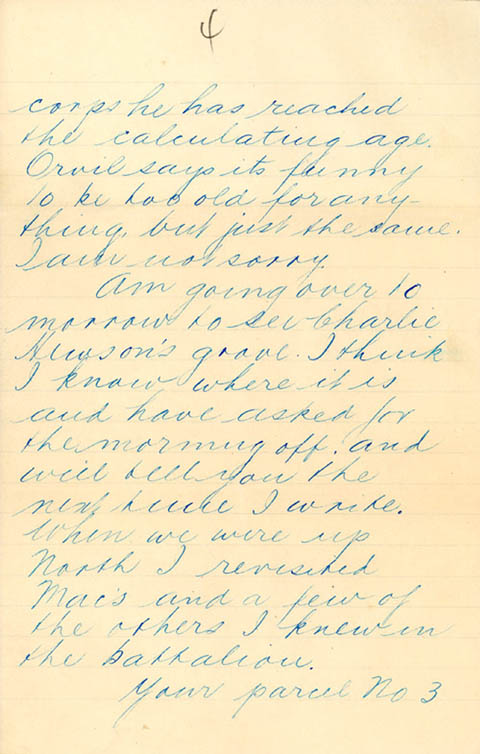 4
corps he has reached
the calculating age.
Orvil says its funny
to be too old for any-
thing, but just the same.
I am not sorry.
Am going over to
morrow to see Charlie
Newson's grave. I think
I know where it is
and have asked for
the morning off. and
will tell you the
next time I write.
When we were up
North I revisited
Mac's and a few of
the others I knew in
the battalion.
Your parcel No 3